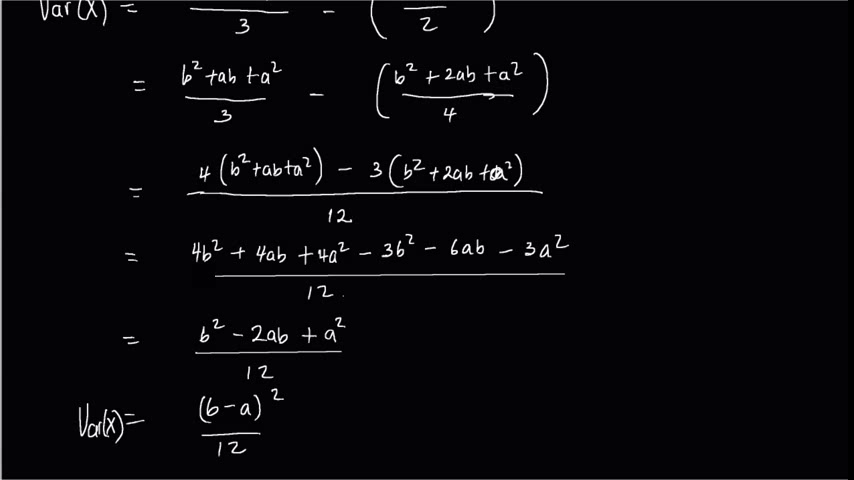 Var(X) = ─── / 3 - ( ─── / 2 )
= (b² + ab + a²) / 3 - ( (b² + 2ab + a²) / 4 )
= (4(b² + ab + a²) - 3(b² + 2ab + a²)) / 12
= (4b² + 4ab + 4a² - 3b² - 6ab - 3a²) / 12
= (b² - 2ab + a²) / 12
Var(X) = (b - a)² / 12